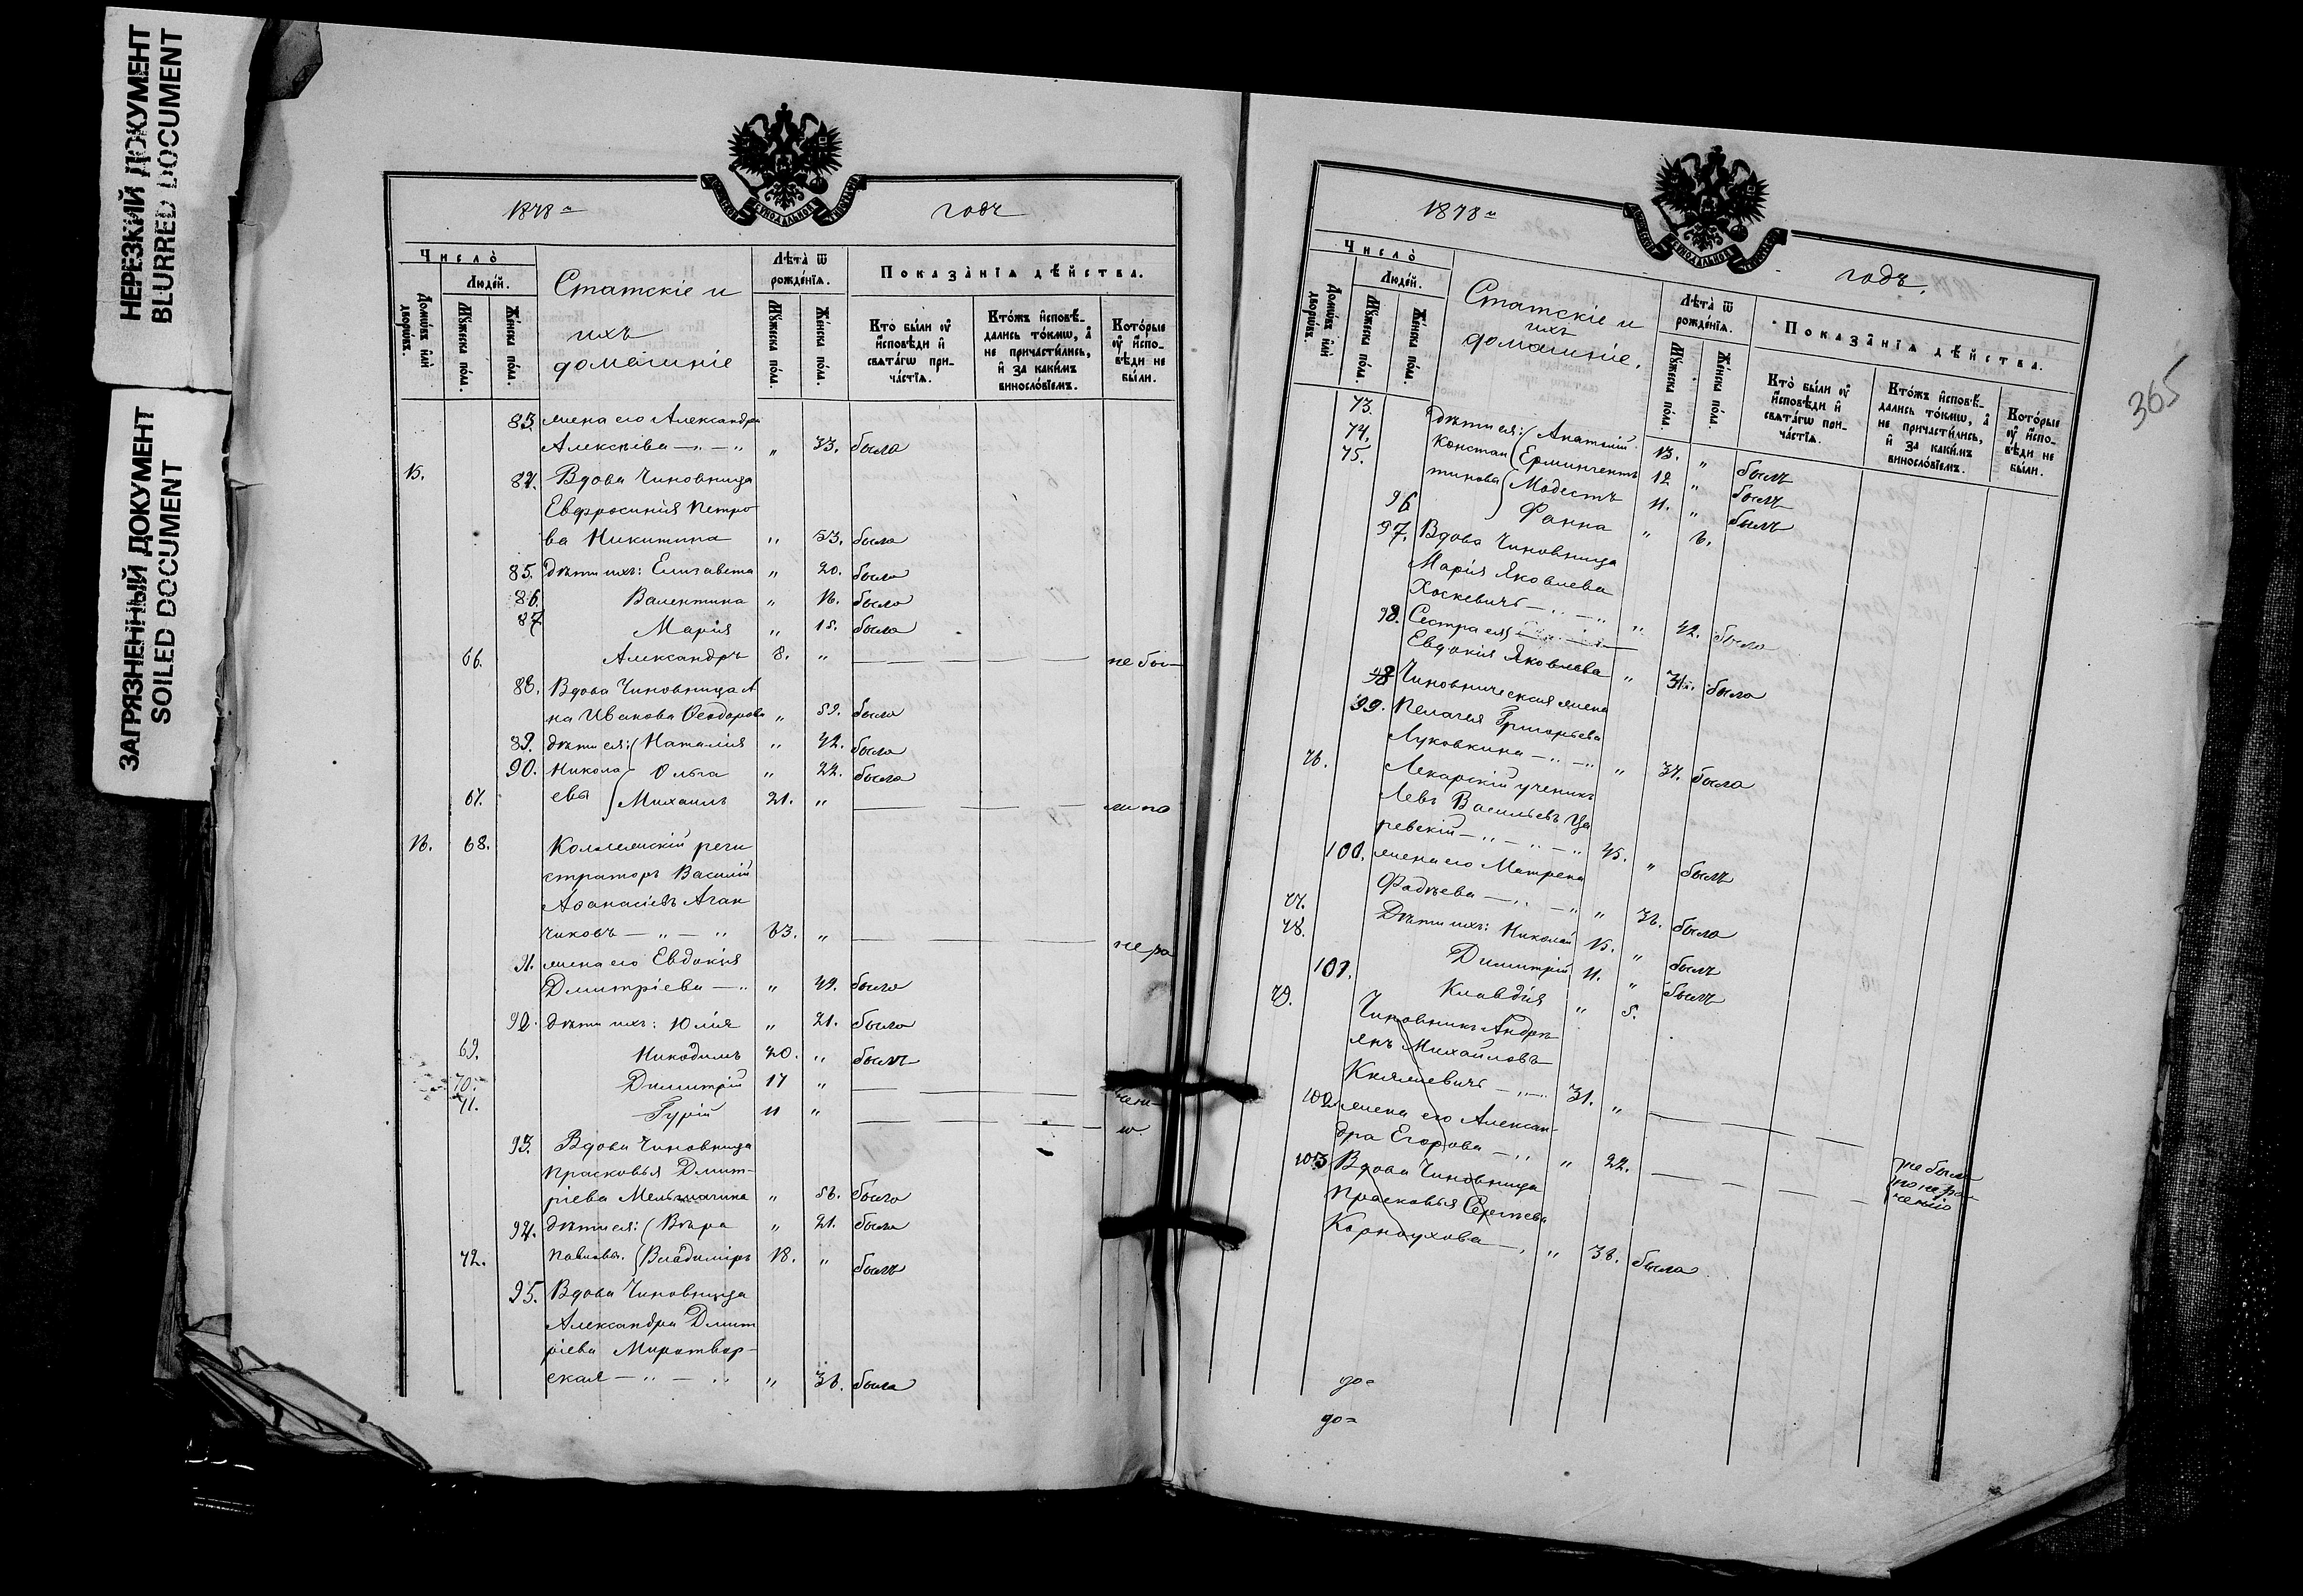 НЕРЕЗКИЙ ДОКУМЕНТ
BLURRED DOCUMENT
ЗАГРЯЗНЕННЫЙ ДОКУМЕНТ
SOILED DOCUMENT
1878 годъ
Число̀
Людей.
Домѡвъ или дворѡвъ.
Мꙋжеска пола.
Женска пола.
Статскіе и
ихъ
домашніе
Лѣта̀ ѿ
рожденїѧ.
Мꙋжеска пола.
Женска пола.
Показанїѧ дѣйства.
Кто были оу
исповѣди и
свѧтагѡ при-
частїѧ.
Ктожъ исповѣ-
дались токмѡ, а
не причастились,
и за какимъ
винословїемъ.
Которые
оу испо-
вѣди не
были.
83. жена его Александра
Алексѣева — „ — „ „ 33. была
15. 84. Вдова Чиновница
Евфросинія Петро
ва Никитина „ 53. была
85. дѣти ихъ: Елизавета „ 20. была
86. Валентина „ 16. была
87. Марія „ 15. была
66. Александръ 8. „ — — — не бы-
88. Вдова Чиновница Ан
на Иванова Ѳеодорова „ 59. была
89. дѣти ея: Наталія „ 42. была
90. Никола Ольга „ 22. была
67. евы Михаилъ 21. „ — — — ли по
16. 68. Коллежскій реги
страторъ Василій
Аѳанасіевъ Аган
чиковъ — „ — „ 63. „ — — — нера
91. жена его Евдокія
Дмитріева — „ „ 49. была
92. дѣти ихъ: Юлія „ 21. была
69. Никодимъ 20. „ былъ
70. Димитрій 17 „ — — — чені-
71. Гурій 11 „ — — — ю.
93. Вдова Чиновница
Прасковья Дмит-
ріева Мельшагина „ 56. была
94. дѣти ея: Вѣра „ 21. была
72. Павловы. Владиміръ 18. „ былъ
95. Вдова Чиновница
Александра Дмит
ріева Миротвор-
ская — „ — „ „ 36. была
1878 годъ.
365
Число̀
Людей.
Домѡвъ или дворѡвъ.
Мꙋжеска пола.
Женска пола.
Статскіе и
ихъ
домашніе.
Лѣта̀ ѿ
рожденїѧ.
Мꙋжеска пола.
Женска пола.
Показанїѧ дѣйства.
Кто были оу
исповѣди и
свѧтагѡ при-
частїѧ.
Ктожъ исповѣ-
дались токмѡ, а
не причастились,
и за какимъ
винословїемъ.
Которые
оу испо-
вѣди не
были.
73. дѣти ея: Анатолій 13. „ былъ
74. Констан Ермингентъ 12 „ былъ
75. тинова Модестъ 11. „ былъ
96 Фанна „ 6.
97. Вдова Чиновница
Марія Яковлева
Хоскевичъ — „ — „ „ 42. была
98. Сестра ея
Евдокія Яковлева „ 31. была
98 Чиновническая жена
99. Пелагея Григорьева
Луковкина — „ — „ „ 34. была
76. Лекарскій ученикъ
Левъ Васильевъ Ца
ревскій — „ — „ — „ 45. „ былъ
100. жена его Матрена
Фадѣева — „ — „ „ 36. была
77. Дѣти ихъ: Николай 15. „ былъ
78. Димитрій 11. „ былъ
101. Клавдія „ 5.
79. Чиновникъ Андрі
янъ Михайловъ
Княжевичъ — „ — „ 31. „ — — —
102. жена его Алексан-
дра Егорова — „ „ 22. — — — не были
по нера-
ченію
103 Вдова Чиновница
Прасковья Сергѣева
Корноухова — „ „ 38. была
до=
до=